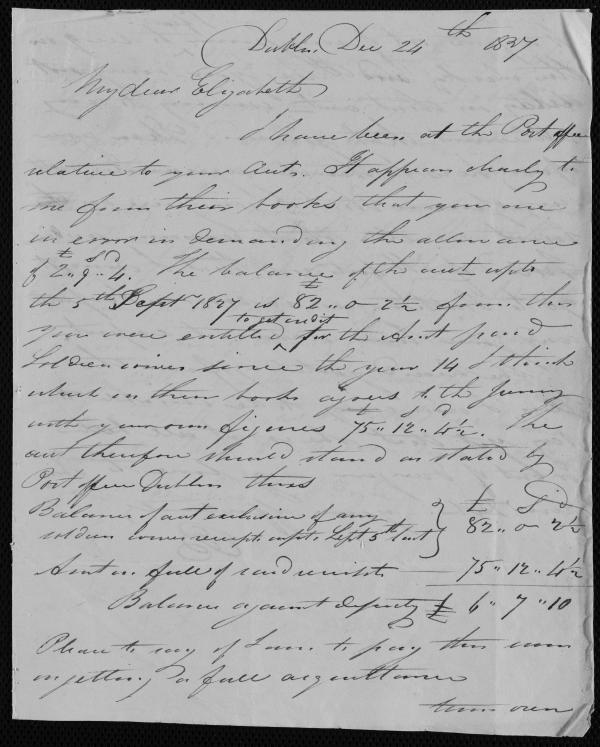 Dublin, Dec 24th 1827
My dear Elizabeth
I have been at the Post office
relative to your Accts. It appears clearly to
me from their books that you are
in error in demanding the allowance
of £2 .. s9 .. d4. The balance of the acct up to
the 5th Sept 1827 is £82 .. 0 - 2½ from this
you were entitled to get credit for the Amt paid
Soldiers wives since the year 14 I think
which in their books agrees to the penny
with your own figures £75 .. s12 .. d4½. The
acct therefore should stand as stated by
Post office Dublin thus
Balance of acct exclusive of any
soldiers wives receipts up to Sept 5th last } £ S D 82 .. 0 - 2½
Amt in full of said receipts 75 .. 12 .. 4½
Balance against deputy £ 6 .. 7 .. 10
Please to say if I am to pay this sum
on getting a full acquittance
turn over